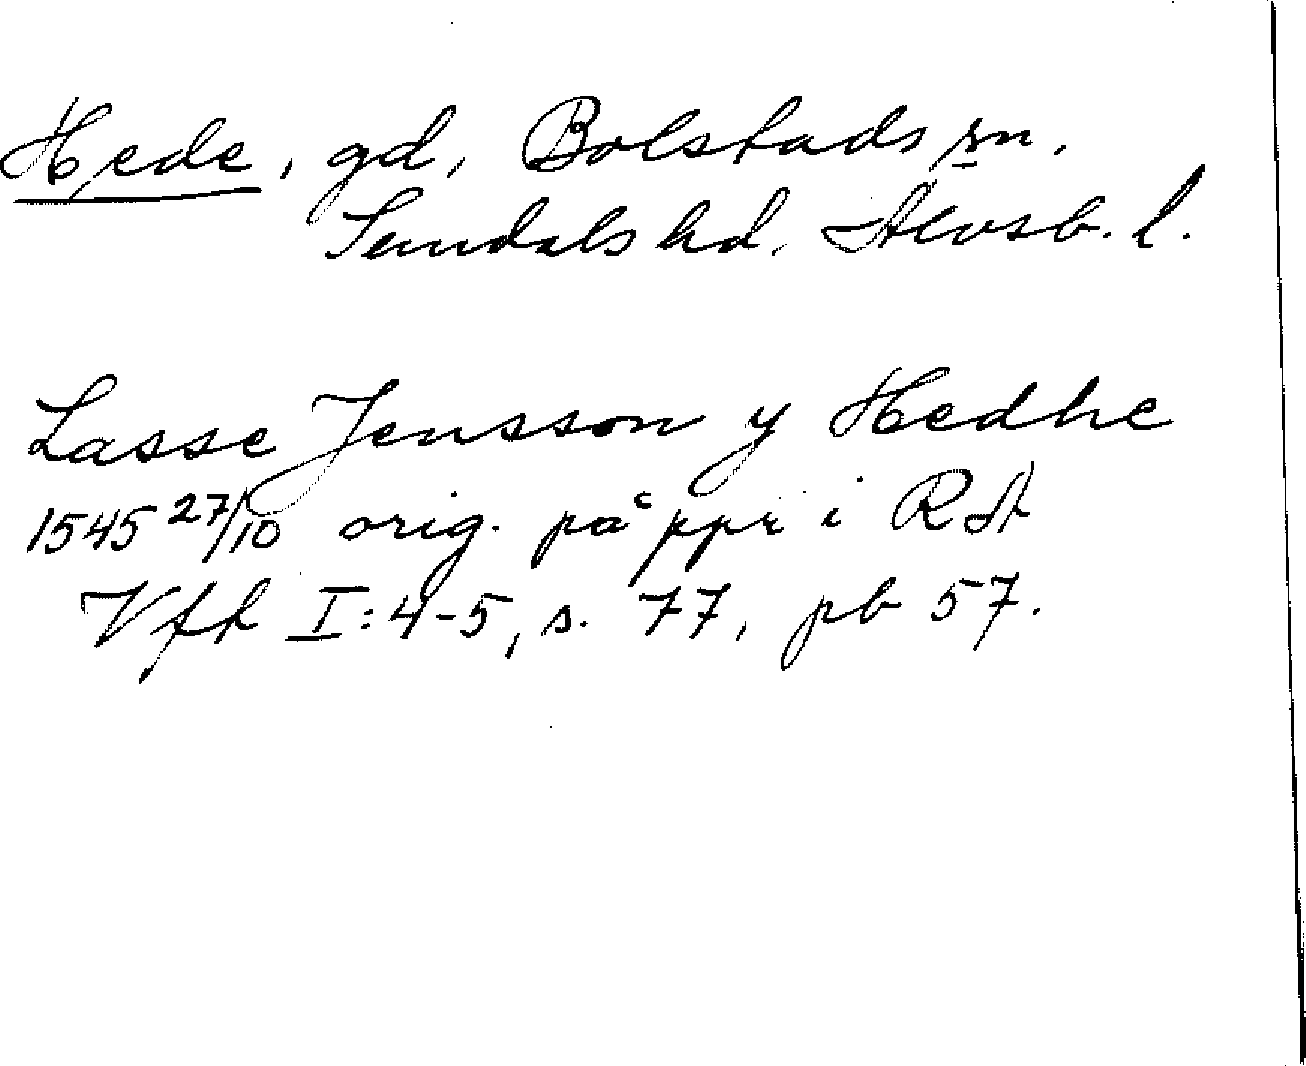 Hede, gd, Bolstads sn.
Sundals hd. Älvsb. l.
Lasse Jensson y Hedhe
1545 27/10 orig. på ppr i RA
Vfk I:4-5, s. 77, pb 57.